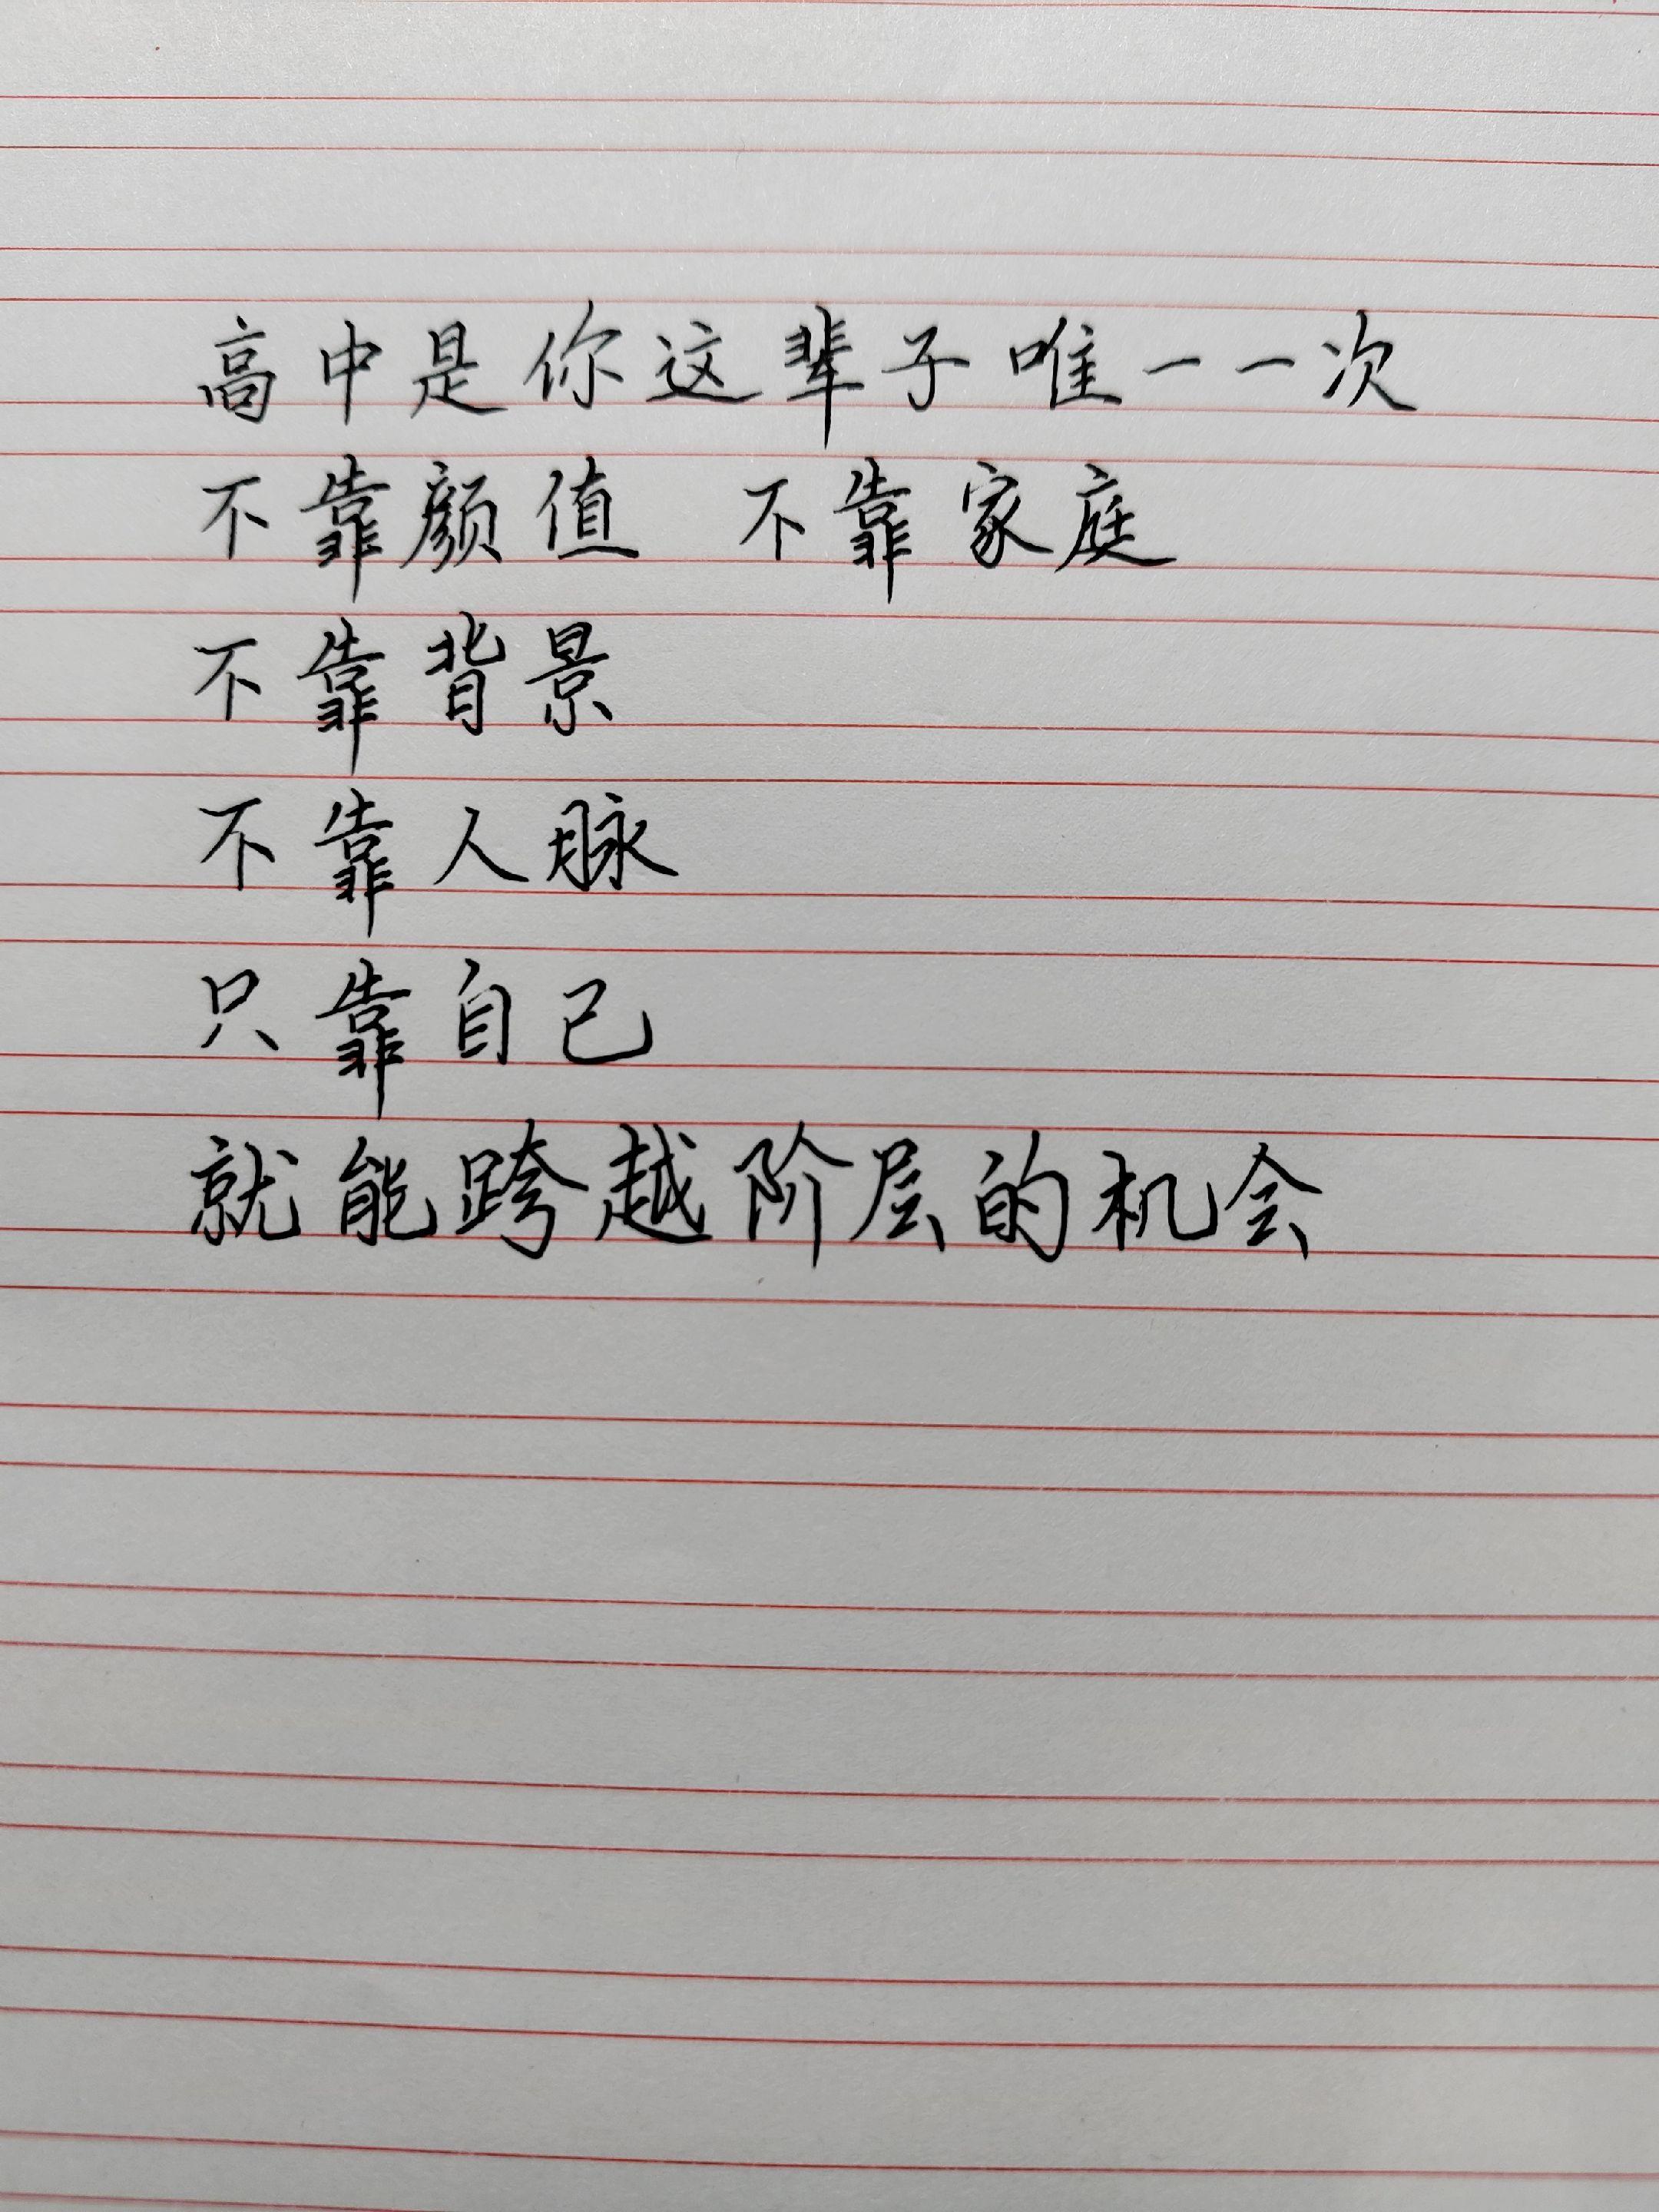 高中是你这辈子唯一一次
不靠颜值 不靠家庭
不靠背景
不靠人脉
只靠自己
就能跨越阶层的机会